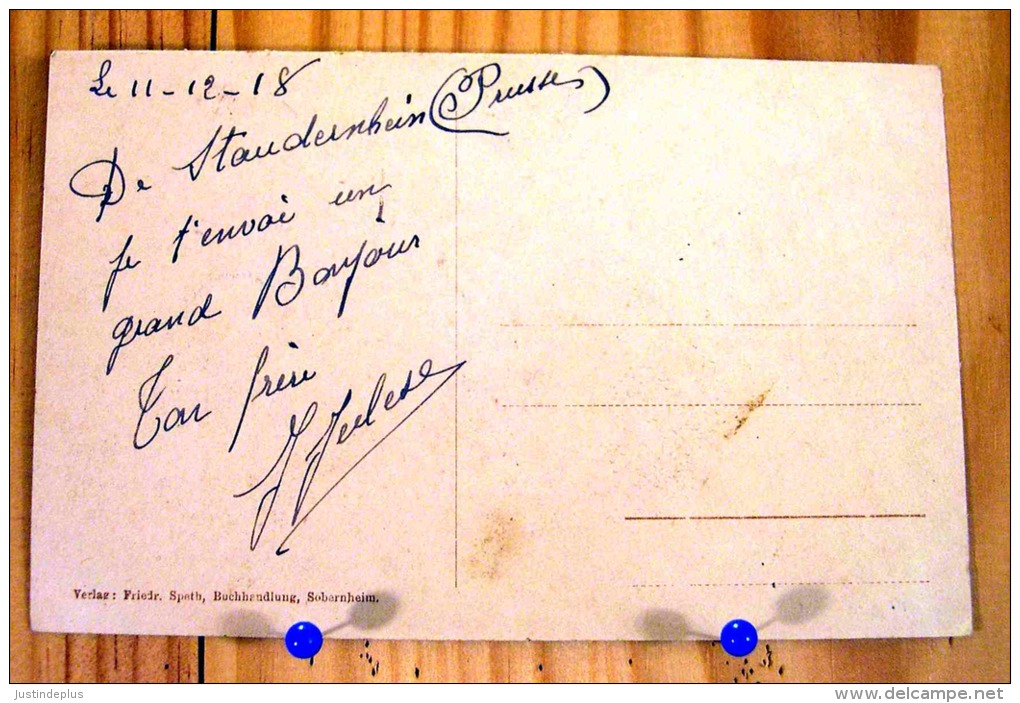 Le 11-12-18
De Staudernheim (Prusse)
je t'envoi un
grand Bonjour
Ton frère
Verlag: Friedr. Speth, Buchhandlung, Sobernheim.
justindeplus
www.delcampe.net